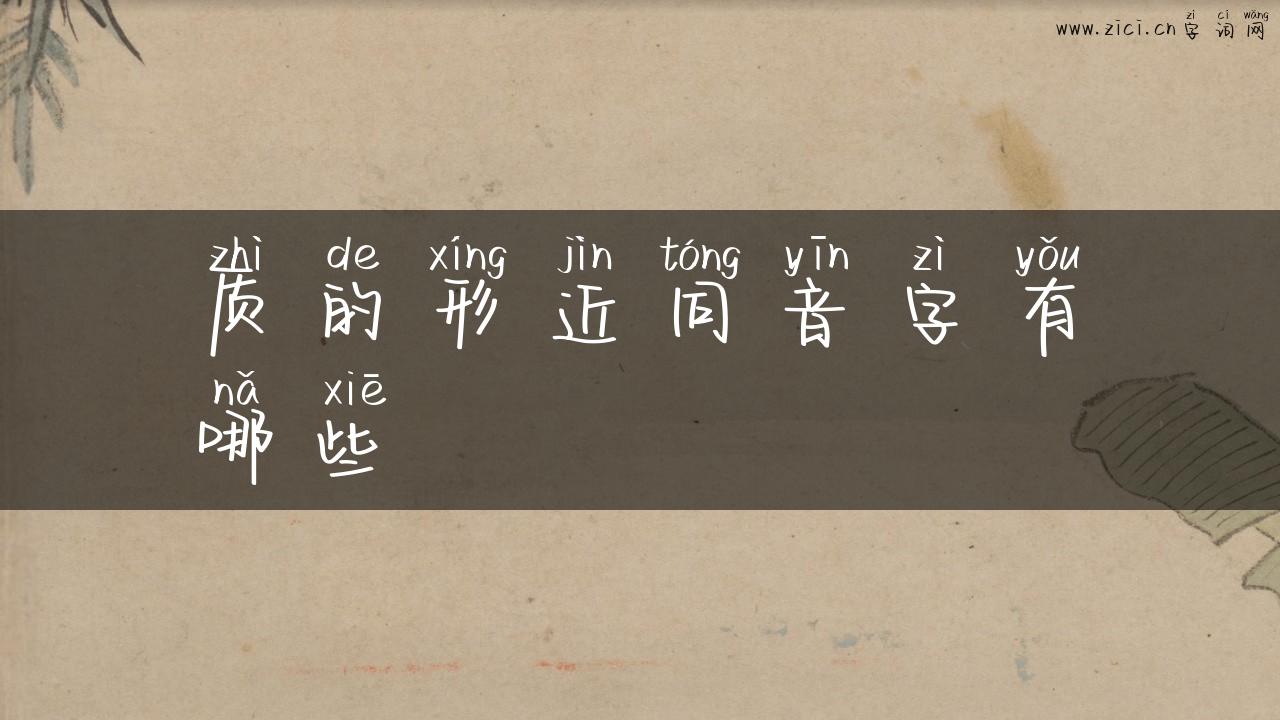 zì cí wǎng
www.zici.cn 字 词 网
zhì de xíng jìn tóng yīn zì yǒu
质 的 形 近 同 音 字 有
nǎ xiē
哪 些